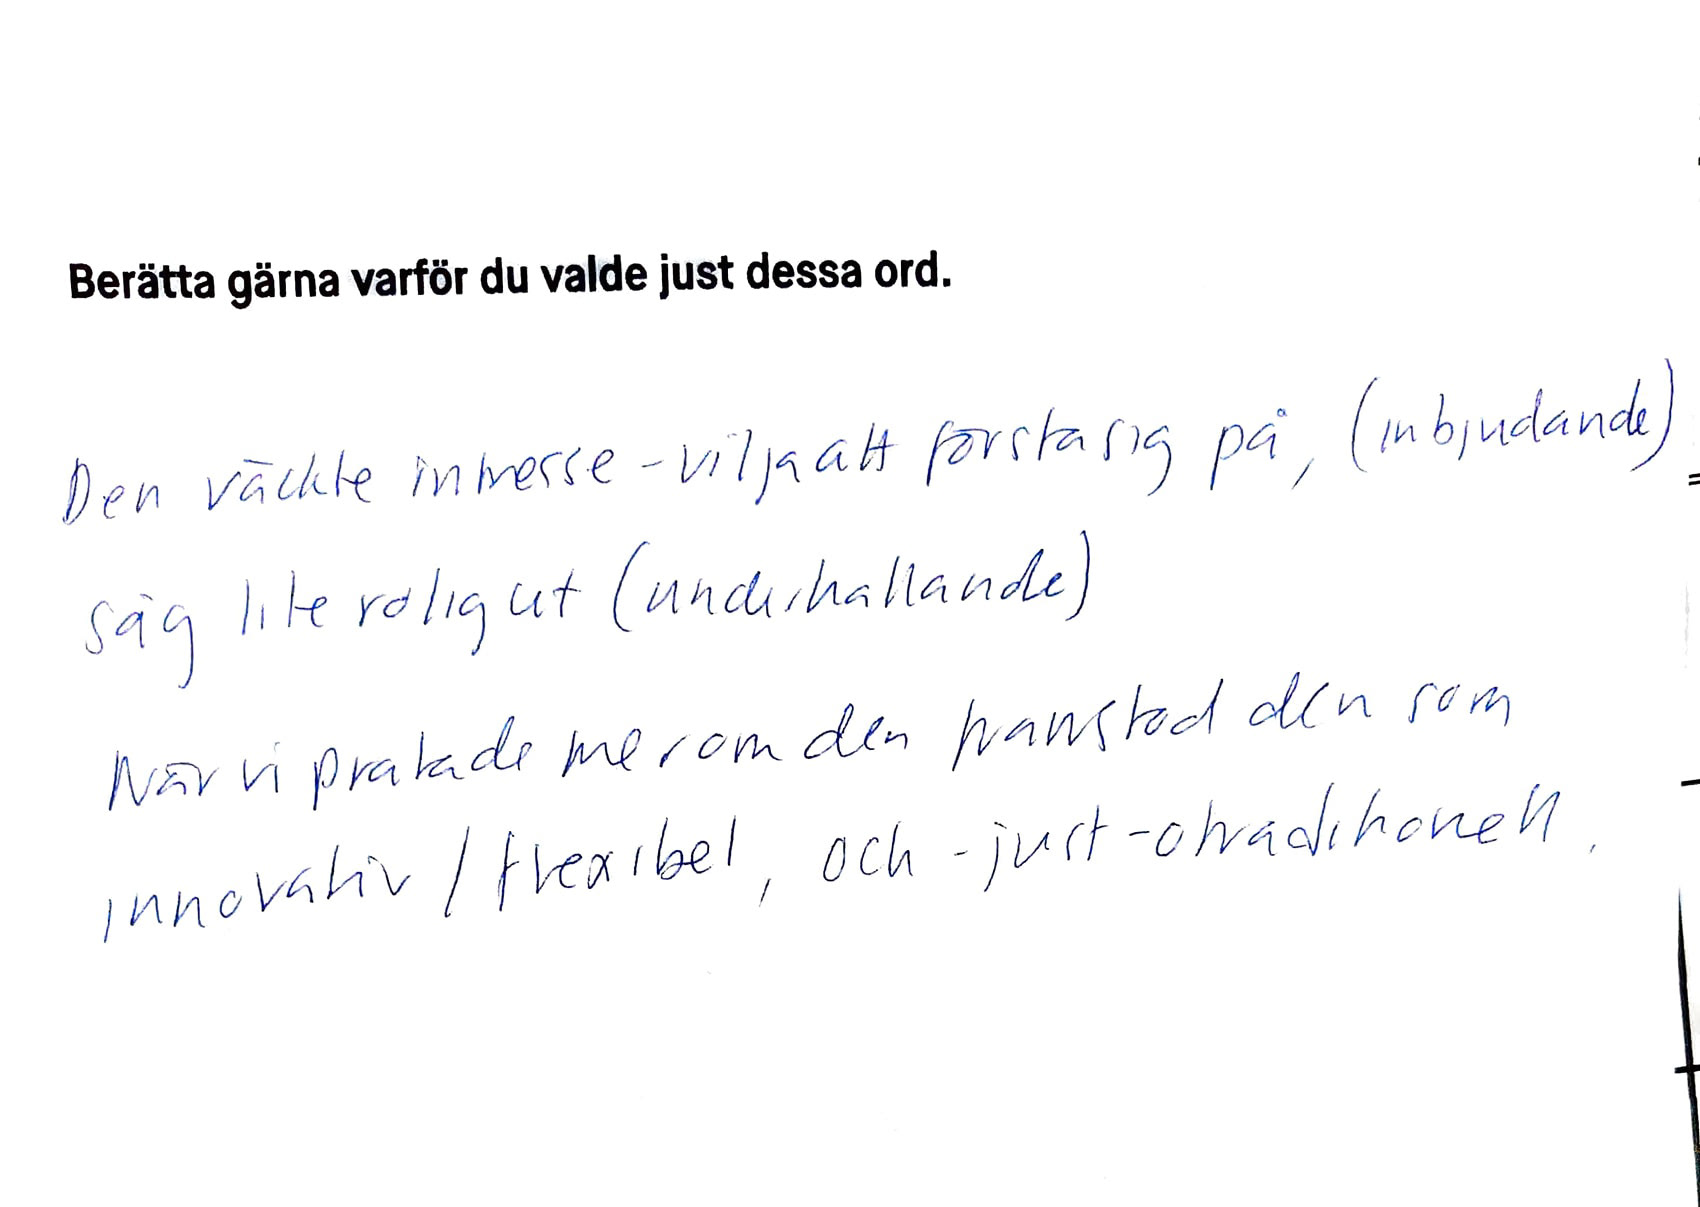 Berätta gärna varför du valde just dessa ord.
Den väckte intresse - vilja att förstå sig på, (inbjudande)
såg lite rolig ut (underhållande)
När vi pratade mer om den framstod den som
innovativ / flexibel, och - just - otraditionell.